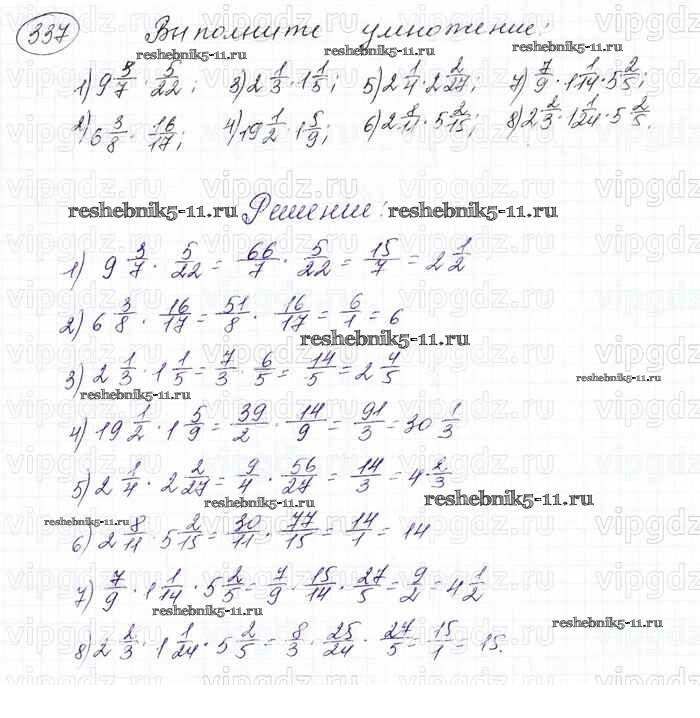 337 Выполните умножение:
1) 9 3/7 · 5/22; 3) 2 1/3 · 1 1/5; 5) 2 1/4 · 2 2/27; 7) 7/9 · 1 1/14 · 5 2/5;
2) 6 3/8 · 16/17; 4) 19 1/2 · 1 5/9; 6) 2 8/11 · 5 2/15; 8) 2 2/3 · 1 1/24 · 5 2/5.
reshebnik5-11.ru Решение: reshebnik5-11.ru
1) 9 3/7 · 5/22 = 66/7 · 5/22 = 15/7 = 2 1/2
2) 6 3/8 · 16/17 = 51/8 · 16/17 = 6/1 = 6
reshebnik5-11.ru
3) 2 1/3 · 1 1/5 = 7/3 · 6/5 = 14/5 = 2 4/5
reshebnik5-11.ru
reshebnik5-11.ru
4) 19 1/2 · 1 5/9 = 39/2 · 14/9 = 91/3 = 30 1/3
5) 2 1/4 · 2 2/27 = 9/4 · 56/27 = 14/3 = 4 2/3
reshebnik5-11.ru
reshebnik5-11.ru
reshebnik5-11.ru
6) 2 8/11 · 5 2/15 = 30/11 · 77/15 = 14/1 = 14
7) 7/9 · 1 1/14 · 5 2/5 = 7/9 · 15/14 · 27/5 = 9/2 = 4 1/2
reshebnik5-11.ru
reshebnik5-11.ru
8) 2 2/3 · 1 1/24 · 5 2/5 = 8/3 · 25/24 · 27/5 = 15/1 = 15.
vipgdz.ru